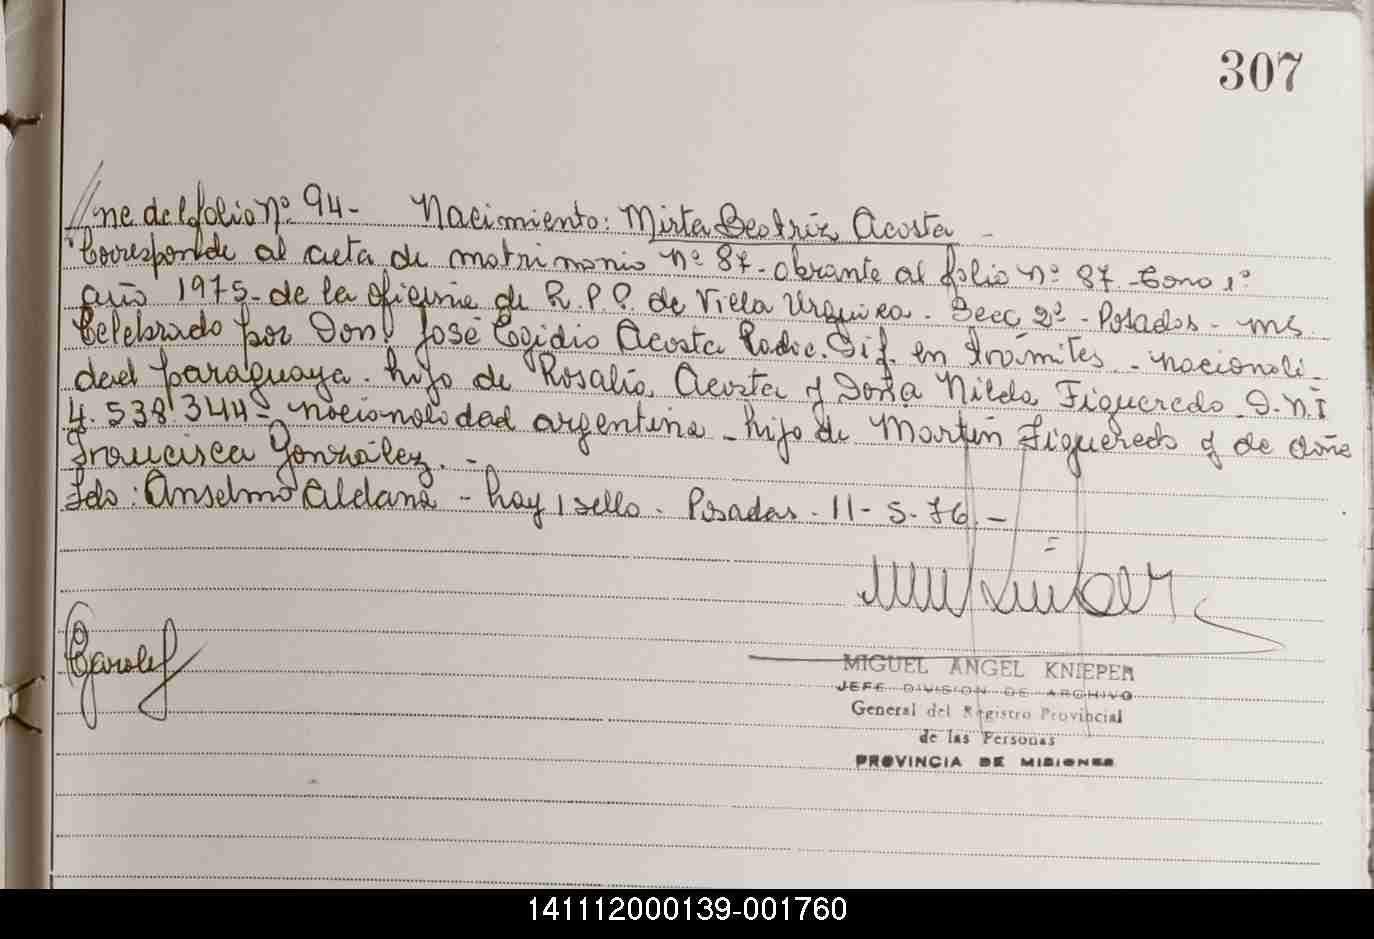 307
//ne del folio nº 94- Nacimiento: Mirta Beatriz Acosta -
Corresponde al acta de matrimonio nº 87- obrante al folio nº 87 - tomo 1º
año 1975- de la oficina de R.P.P. de Villa Urquiza - Secc 2ª - Posadas - ms.
Celebrado por Don José Egidio Acosta Radic. Dif. en trámites - nacionali-
dad paraguaya. hijo de Rosalía Acosta y Doña Nilda Figueredo - D.N.I
4.538.344 - nacionalidad argentina - hija de Martín Figueredo y de doña
Francisca González. -
Fdo: Anselmo Aldana - hay 1 sello. Posadas - 11-5-76 -
MIGUEL ANGEL KNIEPER
JEFE DIVISION DE ARCHIVO
General del Registro Provincial
de las Personas
PROVINCIA DE MISIONES
141112000139-001760